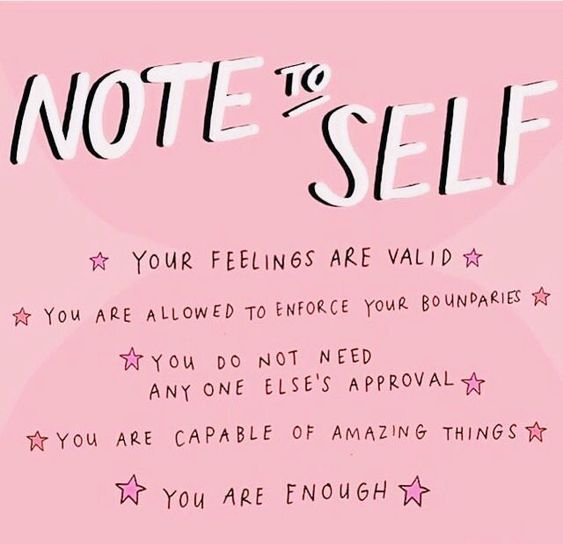 NOTE TO SELF
YOUR FEELINGS ARE VALID
YOU ARE ALLOWED TO ENFORCE YOUR BOUNDARIES
YOU DO NOT NEED
ANY ONE ELSE'S APPROVAL
YOU ARE CAPABLE OF AMAZING THINGS
YOU ARE ENOUGH